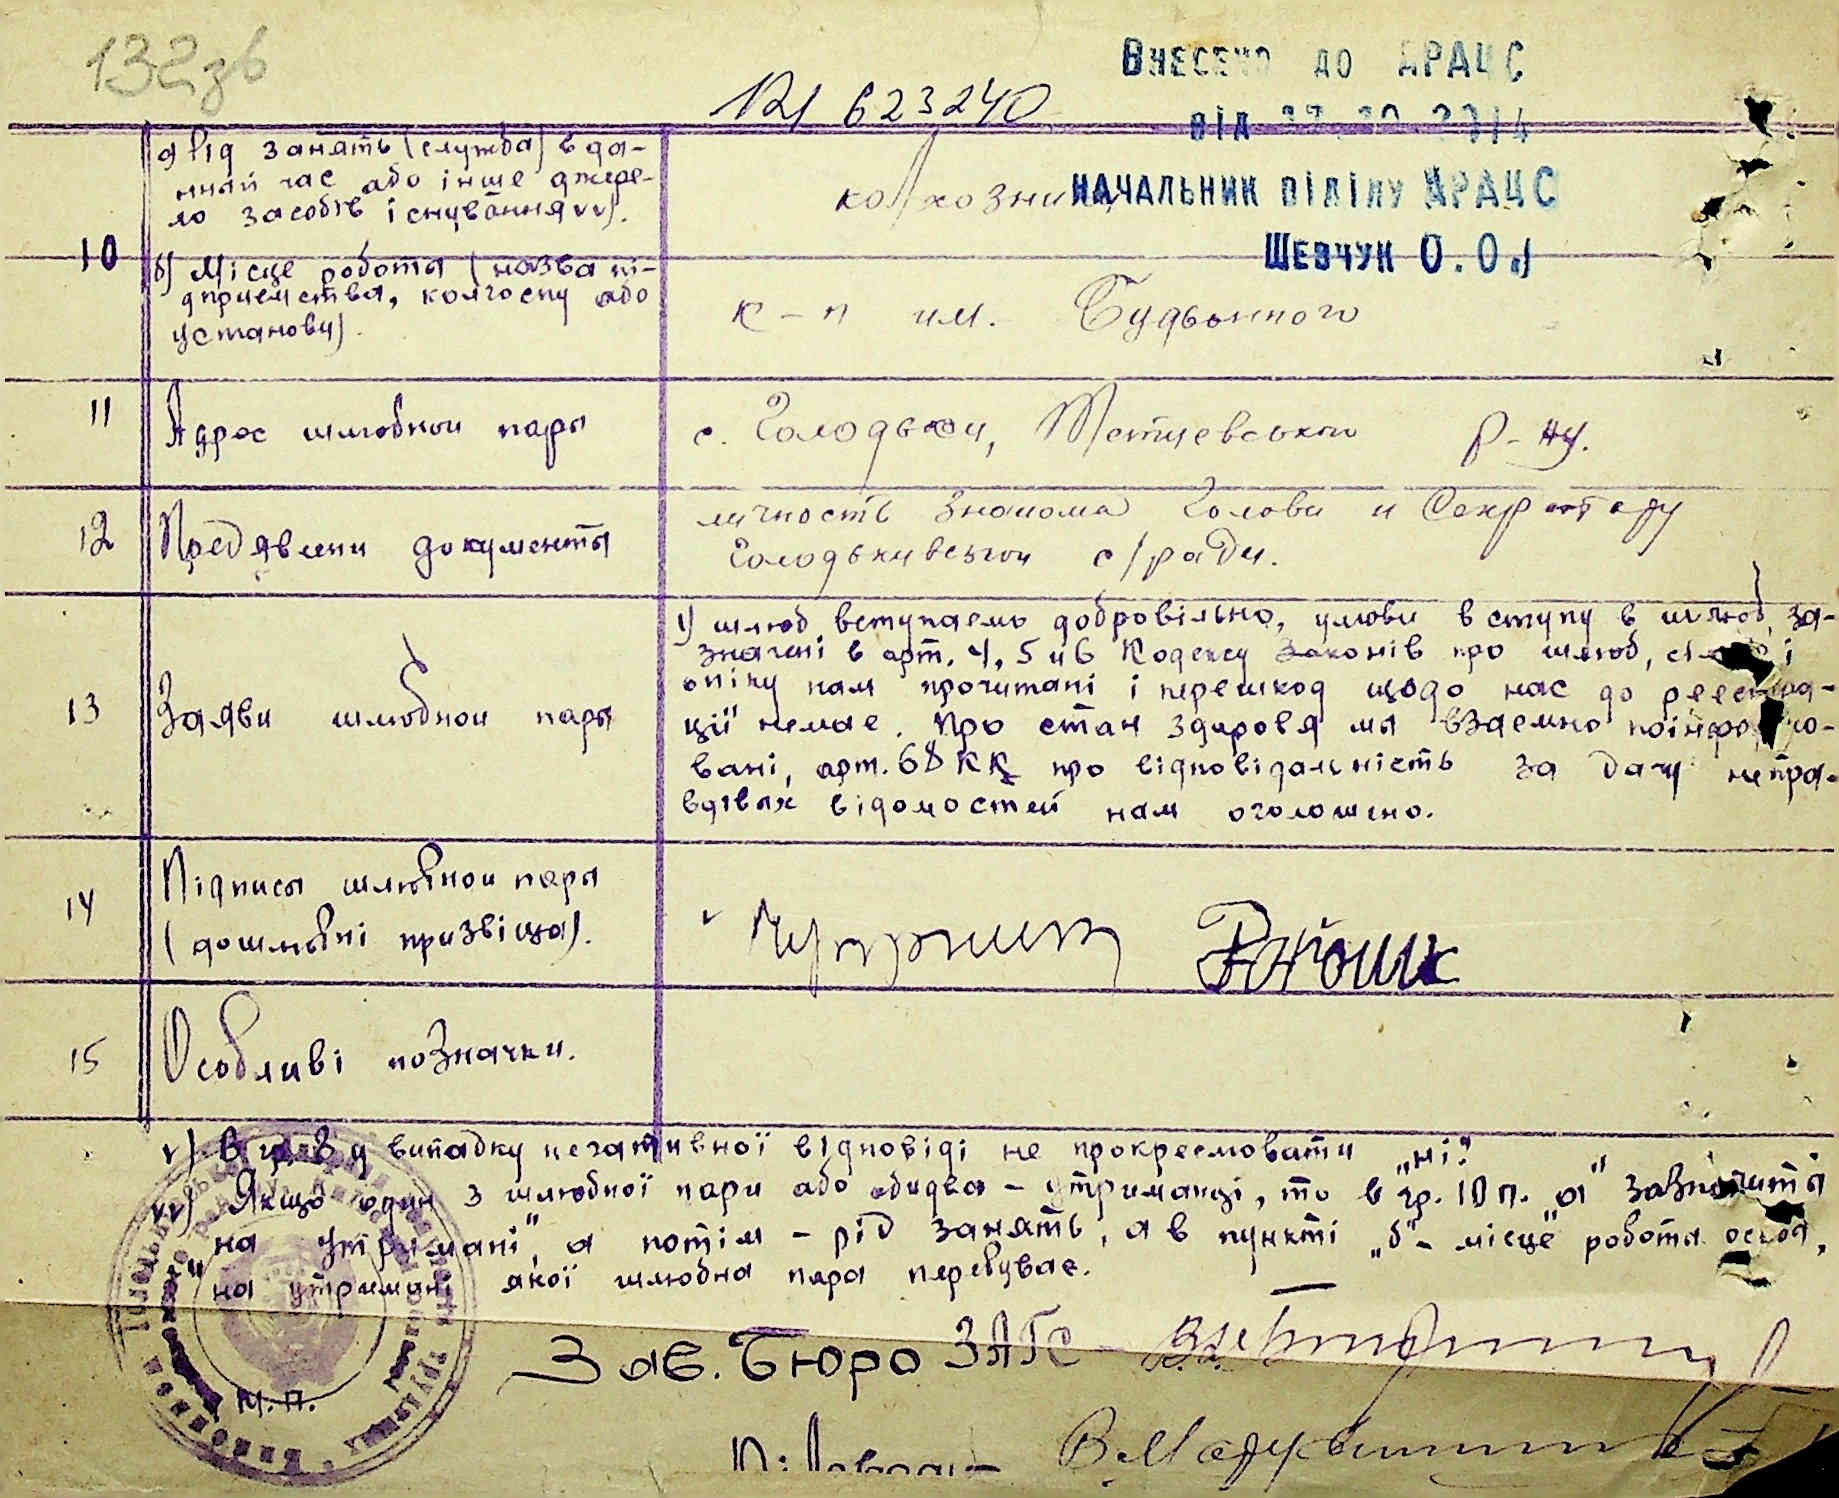 132зв
№ 623240
Внесено до ДРАЦС
від 2014
начальник відділу ДРАЦС
Шевчук О.О.
10
а) Рід занять (служба) в да-
нный час або інше джере-
ло засобів існування vv).
колхозник
б) Місце роботы (назва пі-
дприемства, колгоспу або
установы).
к-п им. Будьонного
11
Адрес шлюбнои пары
с. Голодьки, Тетиевського р-ну.
12
Предявлени документы
личность знайома Голови и Секретару
Голодькивськои с/ради.
13
Заяви шлюбнои пары
У шлюб вступаемо добровільно, умови вступу в шлюб, за-
значені в арт. 4, 5 и 6 Кодексу Законів про шлюб, і
опіку нам прочитані і перешкод щодо нас до реестра-
ції немае. Про стан здоровя мы взаемно поінформо-
вані, арт. 68 КК про відповідальність за дачу непра-
вдивых відомостей нам оголошено.
14
Підписы шлюбнои пары
(дошлюбні призвіща).
15
Особливі позначки.
v) В у випадку негативної відповіді не прокреслювати „ні".
vv) Якщо один з шлюбної пари або обидва - утриманці, то в гр. 10 п. „а" зазначити
„на утримані", а потім - рід занять, а в пункті „б" - місце роботы особы,
на утримані якої шлюбна пара перебувае.
М.П.
Зав. Бюро ЗАГС
Діловод